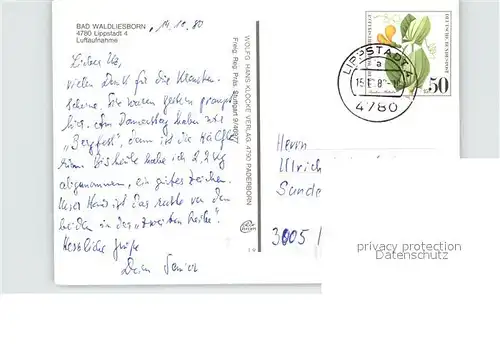 BAD WALDLIESBORN
4780 Lippstadt 4
Luftaufnahme
14.10.80
Lieber Uli,
vielen Dank für die Kranken-
scheine, Sie waren gestern prompt
hier. Am Donnerstag haben wir
„Bergfest", dann ist die Hälfte
um. Bis heute habe ich 2,2 kg
abgenommen, ein gutes Zeichen.
Unser Haus ist das rechte von den
beiden in der „zweiten Reihe".
Herzliche Grüße
Dein
WOLFG. HANS KLOCKE VERLAG, 4790 PADERBORN
Freig. Reg. Präs. Stuttgart
LIPPSTADT 4
a
4780
50
Herrn
Ulrich
3005
privacy protection
Datenschutz